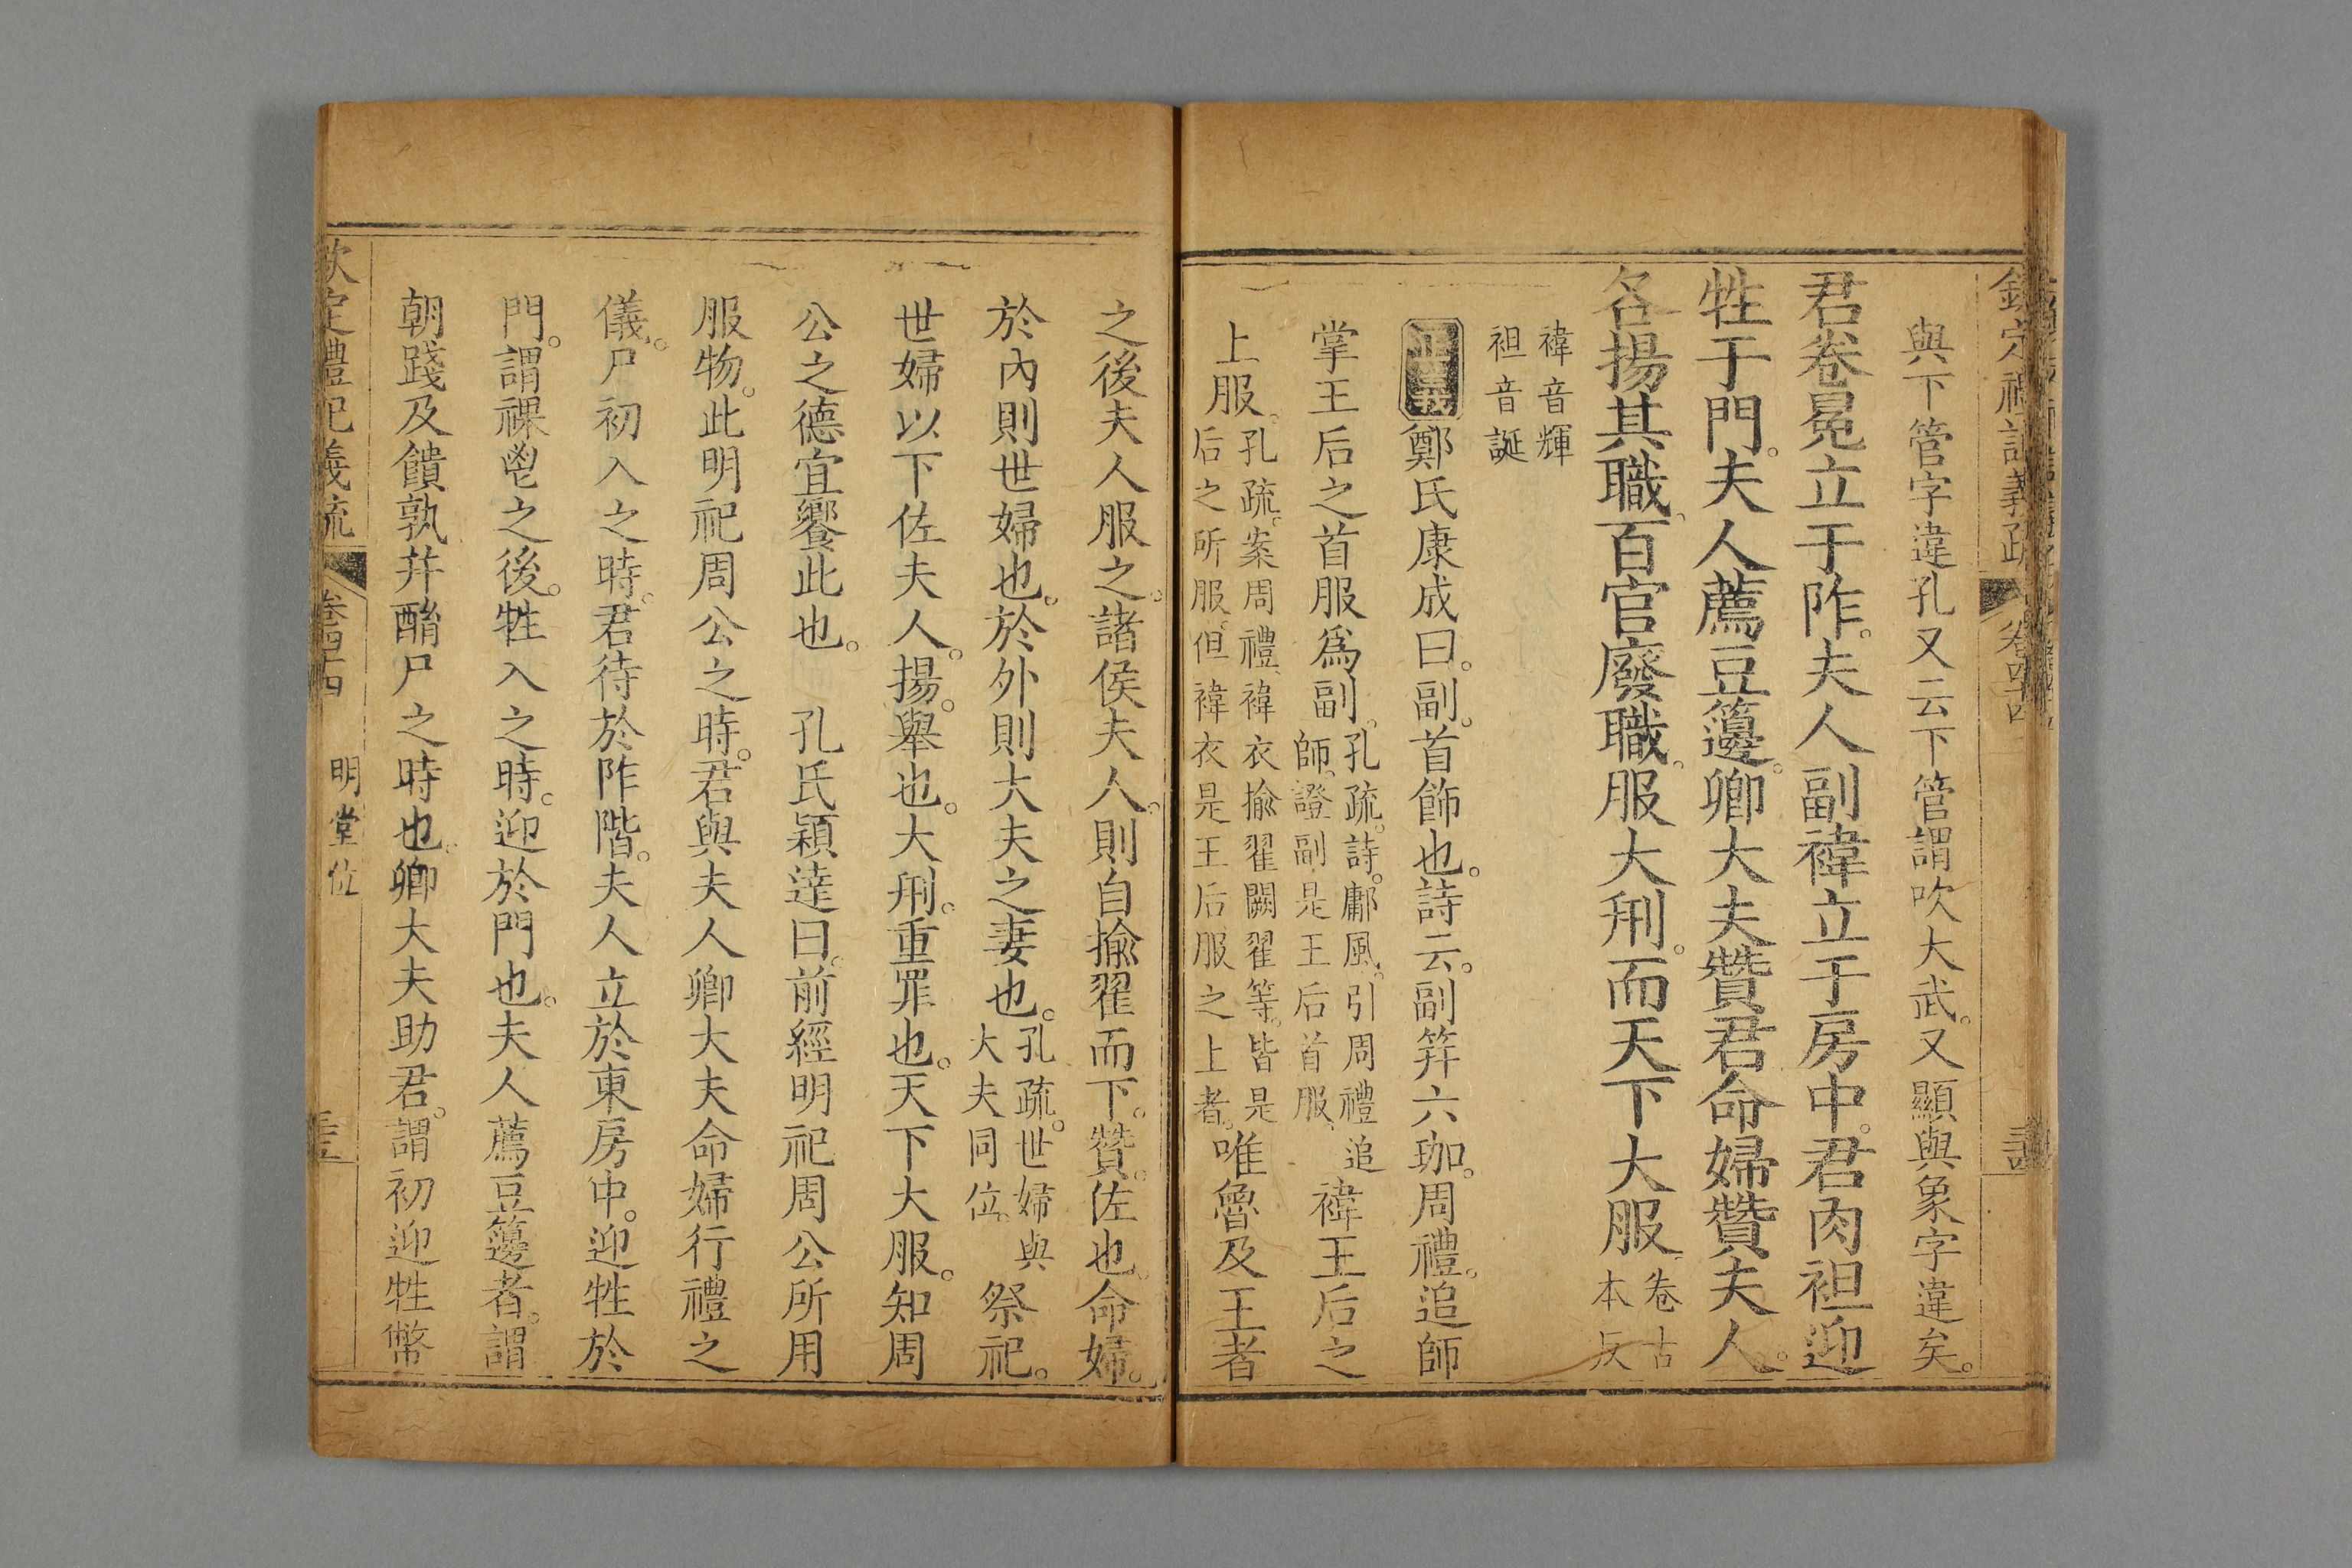 欽定禮記義疏 卷四十四
與下管字違孔又云下管謂吹大武。又顯與象字違矣。
君卷冕立于阼。夫人副褘立于房中。君肉袒迎
牲于門。夫人薦豆籩。卿大夫贊君命婦贊夫人。
各揚其職。百官廢職。服大刑。而天下大服。卷古本反
褘音輝袒音誕
正義鄭氏康成曰。副。首飾也。詩云。副笄六珈。周禮。追師
掌王后之首服爲副。孔疏。詩。鄘風。引周禮追師。證副是王后首服。褘王后之
上服。孔疏。案周禮。褘衣揄翟闕翟等。皆是后之所服。但褘衣是王后服之上者。唯魯及王者
之後夫人服之。諸侯夫人。則自揄翟而下。贊。佐也。命婦。
於內則世婦也。於外則大夫之妻也。孔疏。世婦與大夫同位。祭祀。
世婦以下佐夫人。揚。舉也。大刑。重罪也。天下大服。知周
公之德宜饗此也。 孔氏穎達曰。前經明祀周公所用
服物。此明祀周公之時。君與夫人卿大夫命婦行禮之
儀。尸初入之時。君待於阼階。夫人立於東房中。迎牲於
門。謂祼鬯之後。牲入之時。迎於門也。夫人薦豆籩者。謂
朝踐及饋孰并酳尸之時也。卿大夫助君。謂初迎牲幣
欽定禮記義疏 卷四十四 明堂位